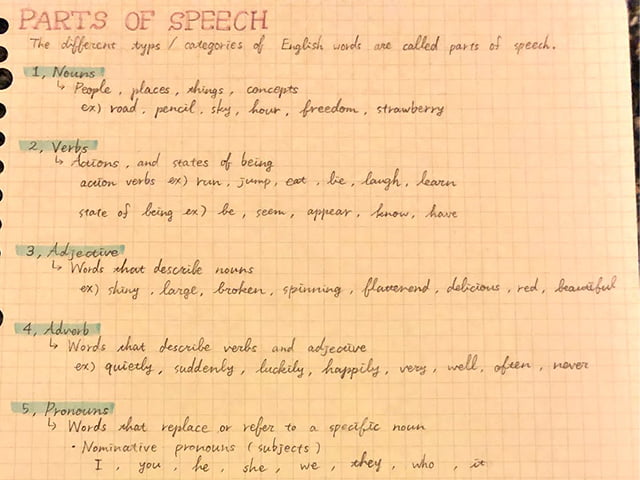 PARTS OF SPEECH
The different typs / categories of English words are called parts of speech.
1, Nouns
↳ People, places, things, concepts
ex) road, pencil, sky, hour, freedom, strawberry
2, Verbs
↳ Actions, and states of being
action verbs ex) run, jump, eat, lie, laugh, learn
state of being ex) be, seem, appear, know, have
3, Adjective
↳ Words that describe nouns
ex) shiny, large, broken, spinning, flatterend, delicious, red, beautiful
4, Adverb
↳ Words that describe verbs and adjective
ex) quietly, suddenly, luckily, happily, very, well, often, never
5, Pronouns
↳ Words that replace or refer to a specific noun
・Nominative pronouns (subjects)
I, you, he, she, we, they, who, it